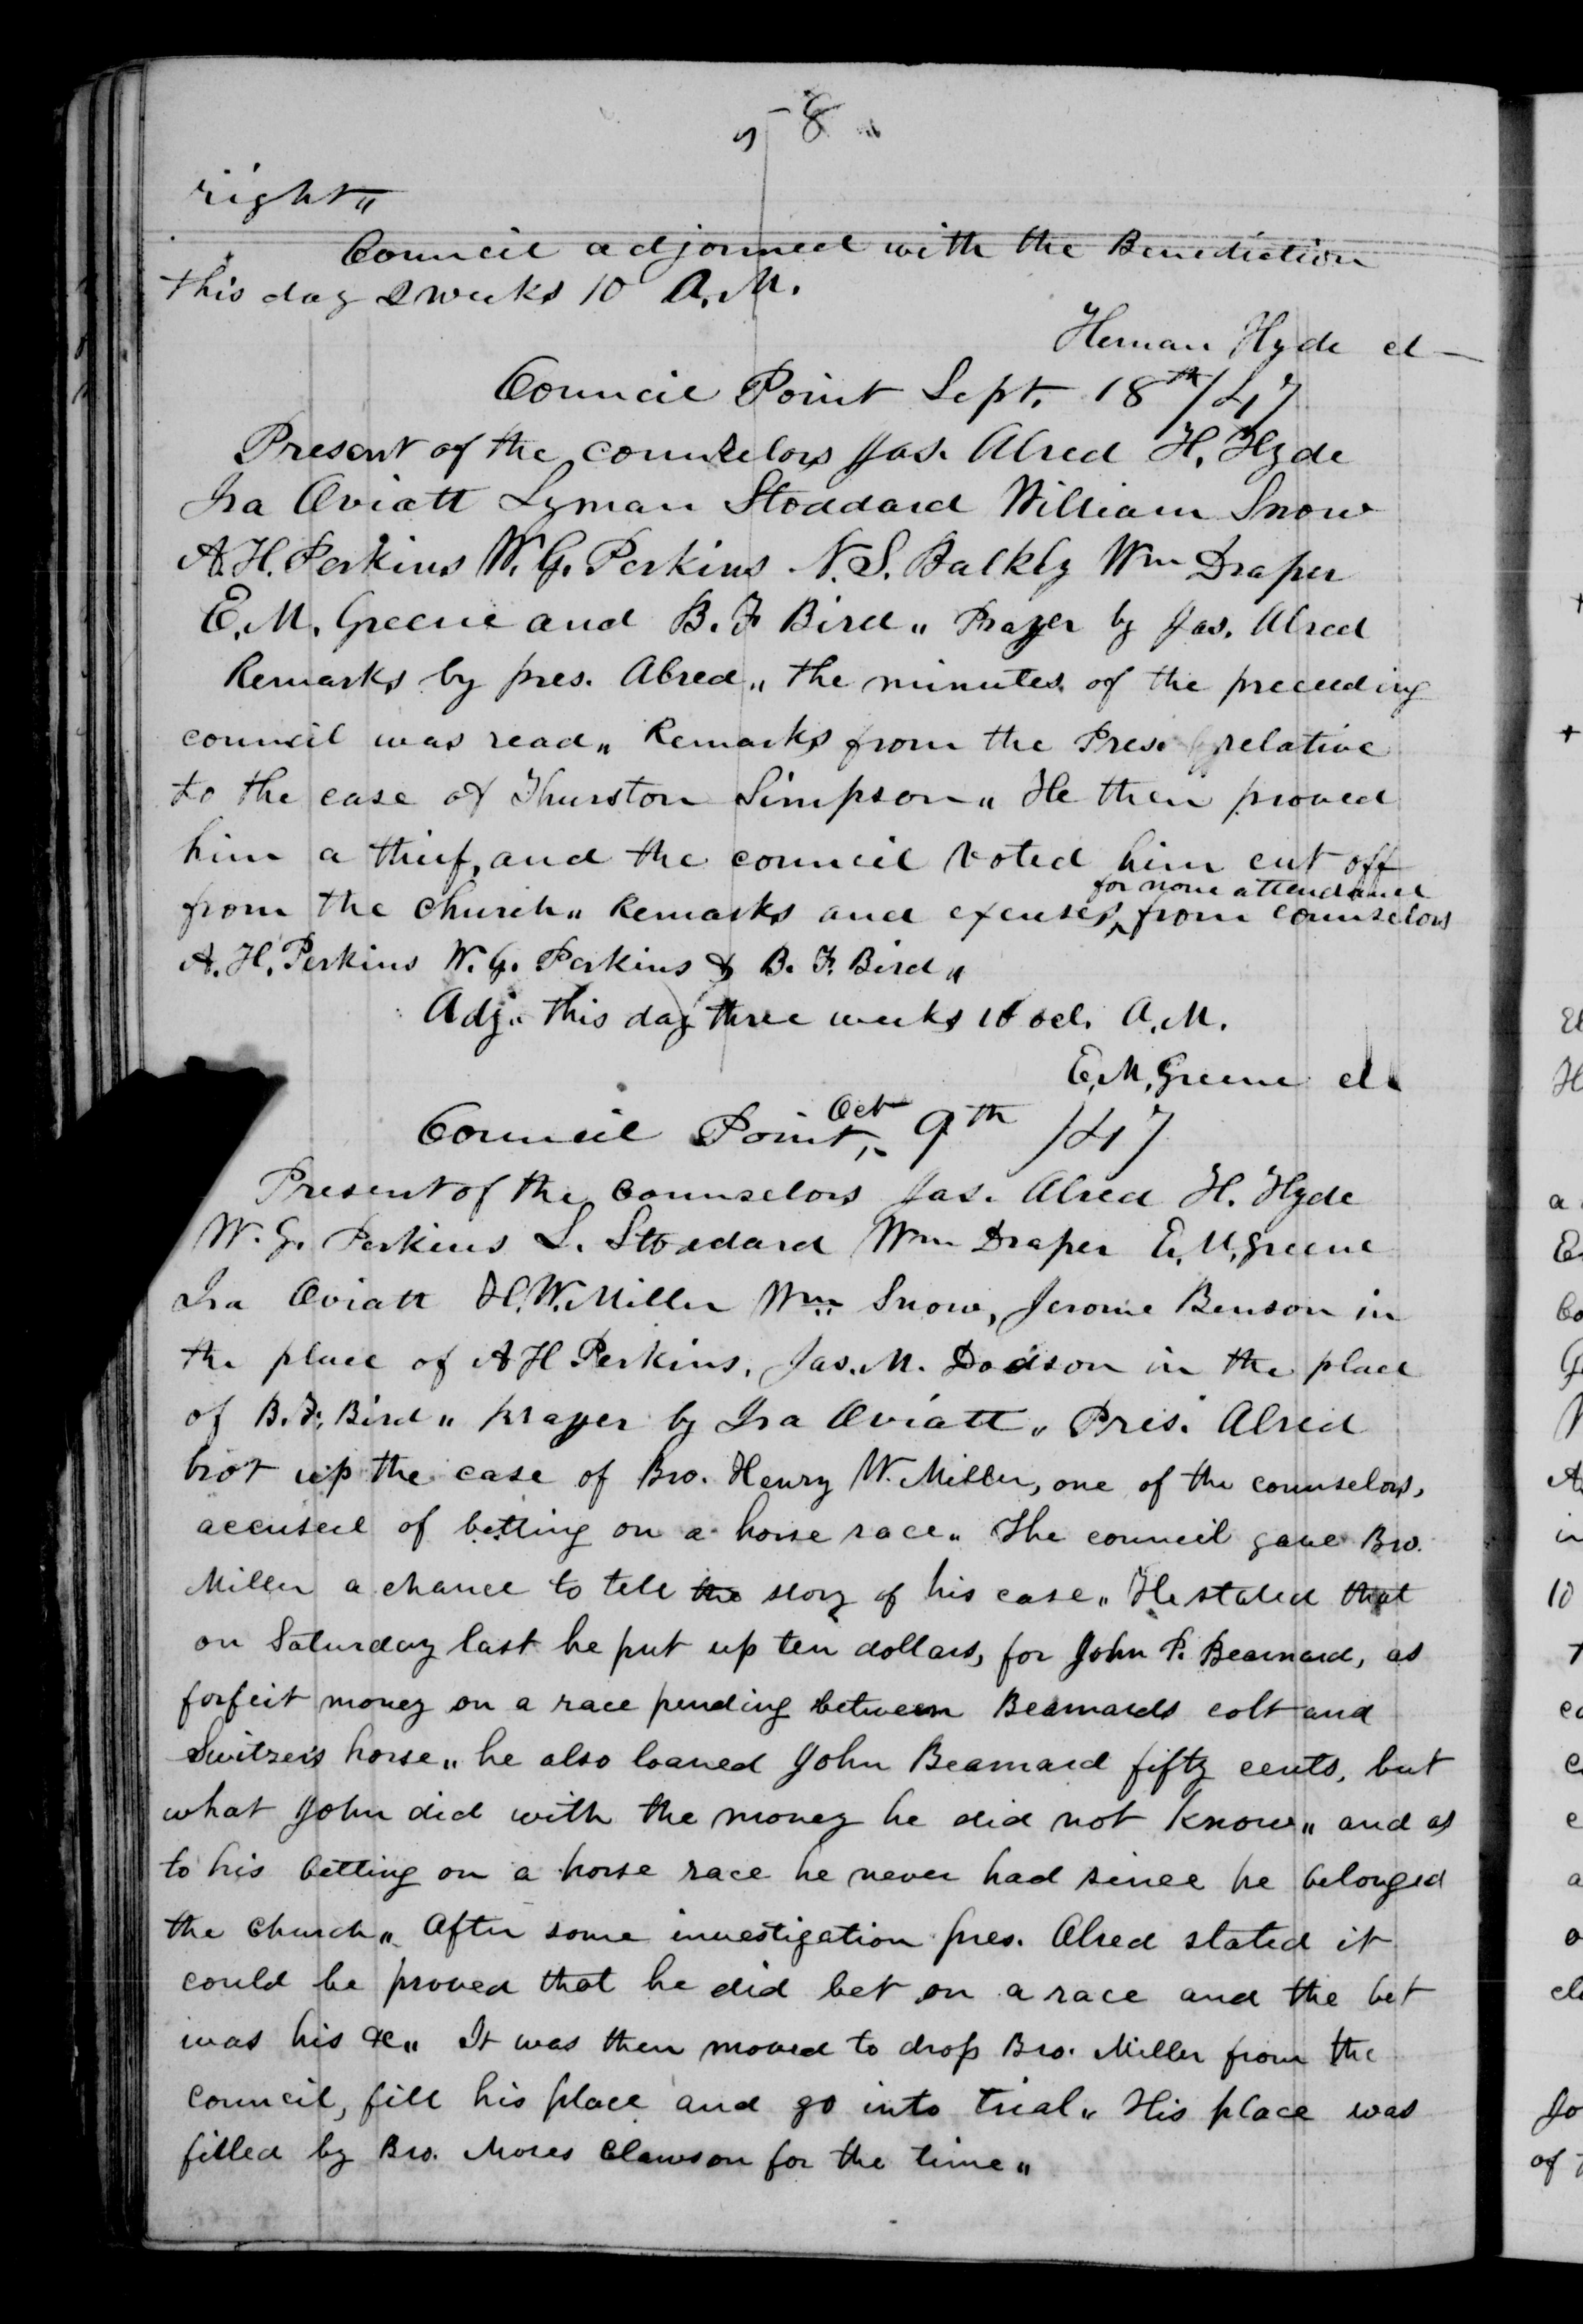 58 "
right "
Council adjorned with the Benediction
this day 2 weeks 10 A.M.
Heman Hyde cl
Council Point Sept. 18th /47
Present of the counselors Jas. Alred H. Hyde
Ira Oviatt Lyman Stoddard William Snow
A. H. Perkins W. G. Perkins N. S. Balkly Wm Draper
E. M. Greene and B. F Bird " Prayer by Jas. Alred
Remarks by pres. Alred " the minutes of the preceeding
council was read " Remarks from the Pres. relative
to the case of Thurston Simpson " He then proved
him a thief, and the council voted him cut off
from the church " Remarks and excuses ^for none attendance from counselors
A. H. Perkins W. G. Perkins & B. F. Bird "
Adj. this day three weeks 10 ocl. A.M.
E. M. Greene cl.
Council Point, Oct 9th /47
Present of the Counselors Jas. Alred H. Hyde
W. G. Perkins L. Stoddard Wm Draper E. M. Greene
Ira Oviatt H. W. Miller Wm Snow, Jerome Benson in
the place of A H Perkins. Jas. M. Dodson in the place
of B. F. Bird " prayer by Ira Oviatt " Pres. Alred
brot up the case of Bro. Henry W. Miller, one of the counselors,
accused of betting on a horse race " The council gave Bro.
Miller a chance to tell the story of his case " He stated that
on Saturday last he put up ten dollars, for John P. Bearnard, as
forfeit money on a race pending between Bearnards colt and
Switzers horse " he also loaned John Bearnard fifty cents, but
what John did with the money he did not know " and as
to his betting on a horse race he never had since he belonged
the church " After some investigation pres. Alred stated it
could be proved that he did bet on a race and the bet
was his &c " It was then moved to drop Bro. Miller from the
council, fill his place and go into trial " His place was
filled by Bro. Moses Clawson for the time "